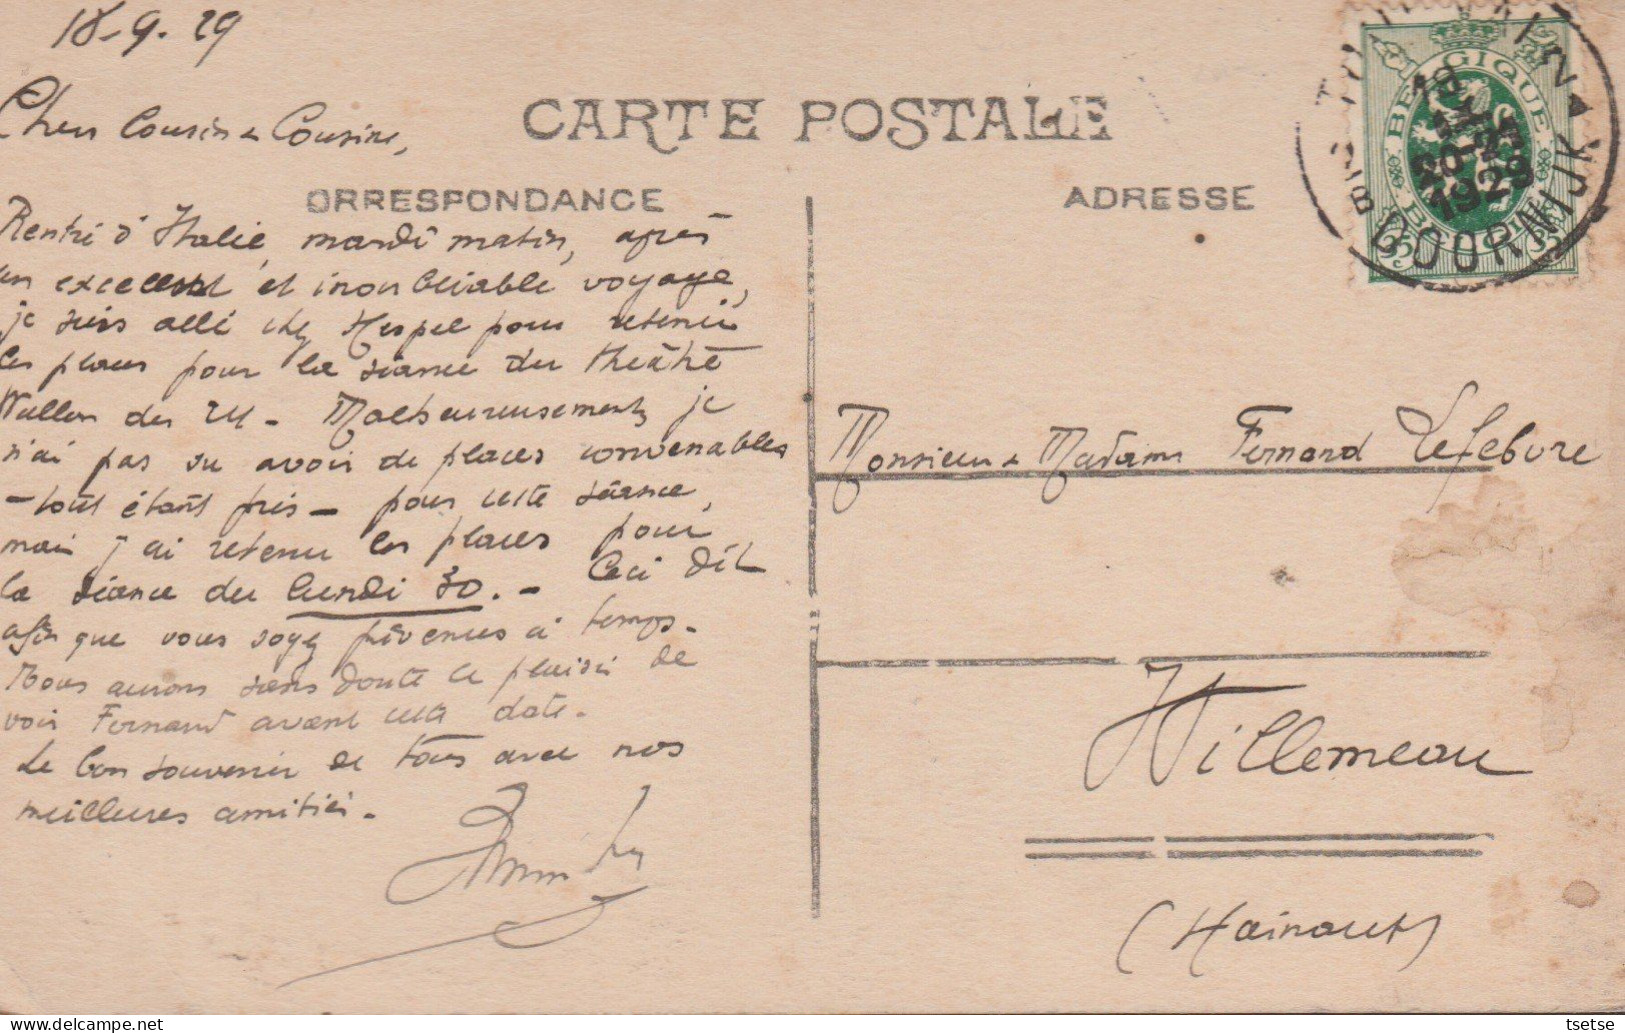 18-9-29
Chers Cousin & Cousine,
CARTE POSTALE
ORRESPONDANCE
ADRESSE
BELGIQUE
BELGIË
35c
35c
DOORNIJK
19
20-21
1929
Rentré d'Italie, mardi matin, après
un excellent et inoubliable voyage,
je suis allé chez Hespel pour retenir
les places pour la séance du théâtre
Wallon du 24 - Malheureusement, je
n'ai pas su avoir de places convenables
- tout étant pris - pour cette séance,
mais j'ai retenu les places pour
la séance du lundi 30. - Ceci dit
afin que vous soyez prévenus à temps.
Nous aurons sans doute le plaisir de
voir Fernand avant cette date.
Le bon souvenir de tous avec nos
meilleures amitiés.
Monsieur & Madame Fernand Lefebvre
Willemeau
(Hainaut)
tsetse